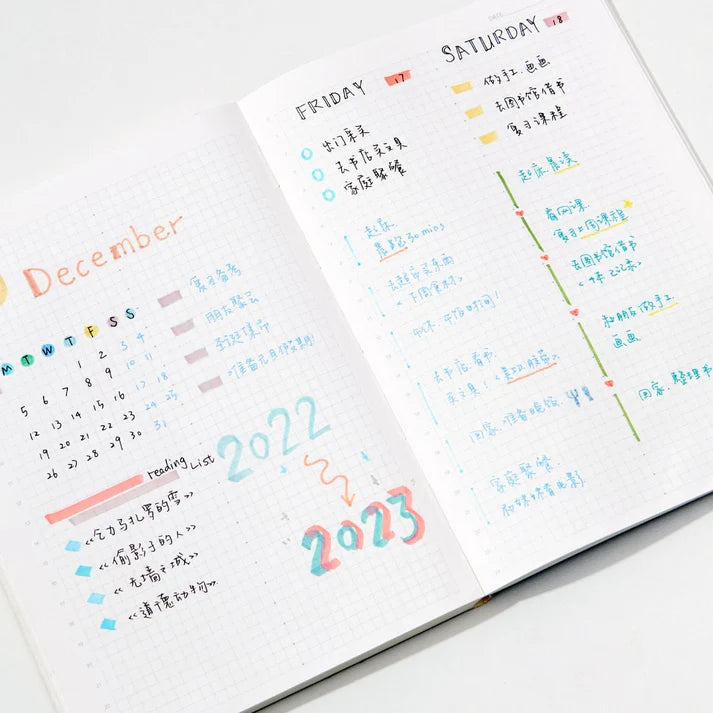 December
M T W T F S S
1 2 3 4
5 6 7 8 9 10 11
12 13 14 15 16 17 18
19 20 21 22 23 24 25
26 27 28 29 30 31
复习备考
朋友聚会
圣诞集市
准备元月伊始
reading List
《乞力马扎罗的雪》
《偷影子的人》
《无墙之城》
《道德动物》
2022
2023
FRIDAY 17
出门采买
去书店买文具
家庭聚餐
起床
晨跑30mins
去超市买东西
<下周食材>
午休、午饭时间!
去书店看书
买文具!
回家、准备晚饭
家庭聚餐
和妹妹看电影
DATE
SATURDAY 18
做手工、画画
去图书馆借书
复习课程
起床晨读
有网课
复习上周课程
去图书馆借书
和朋友做手工
画画
回家、整理书